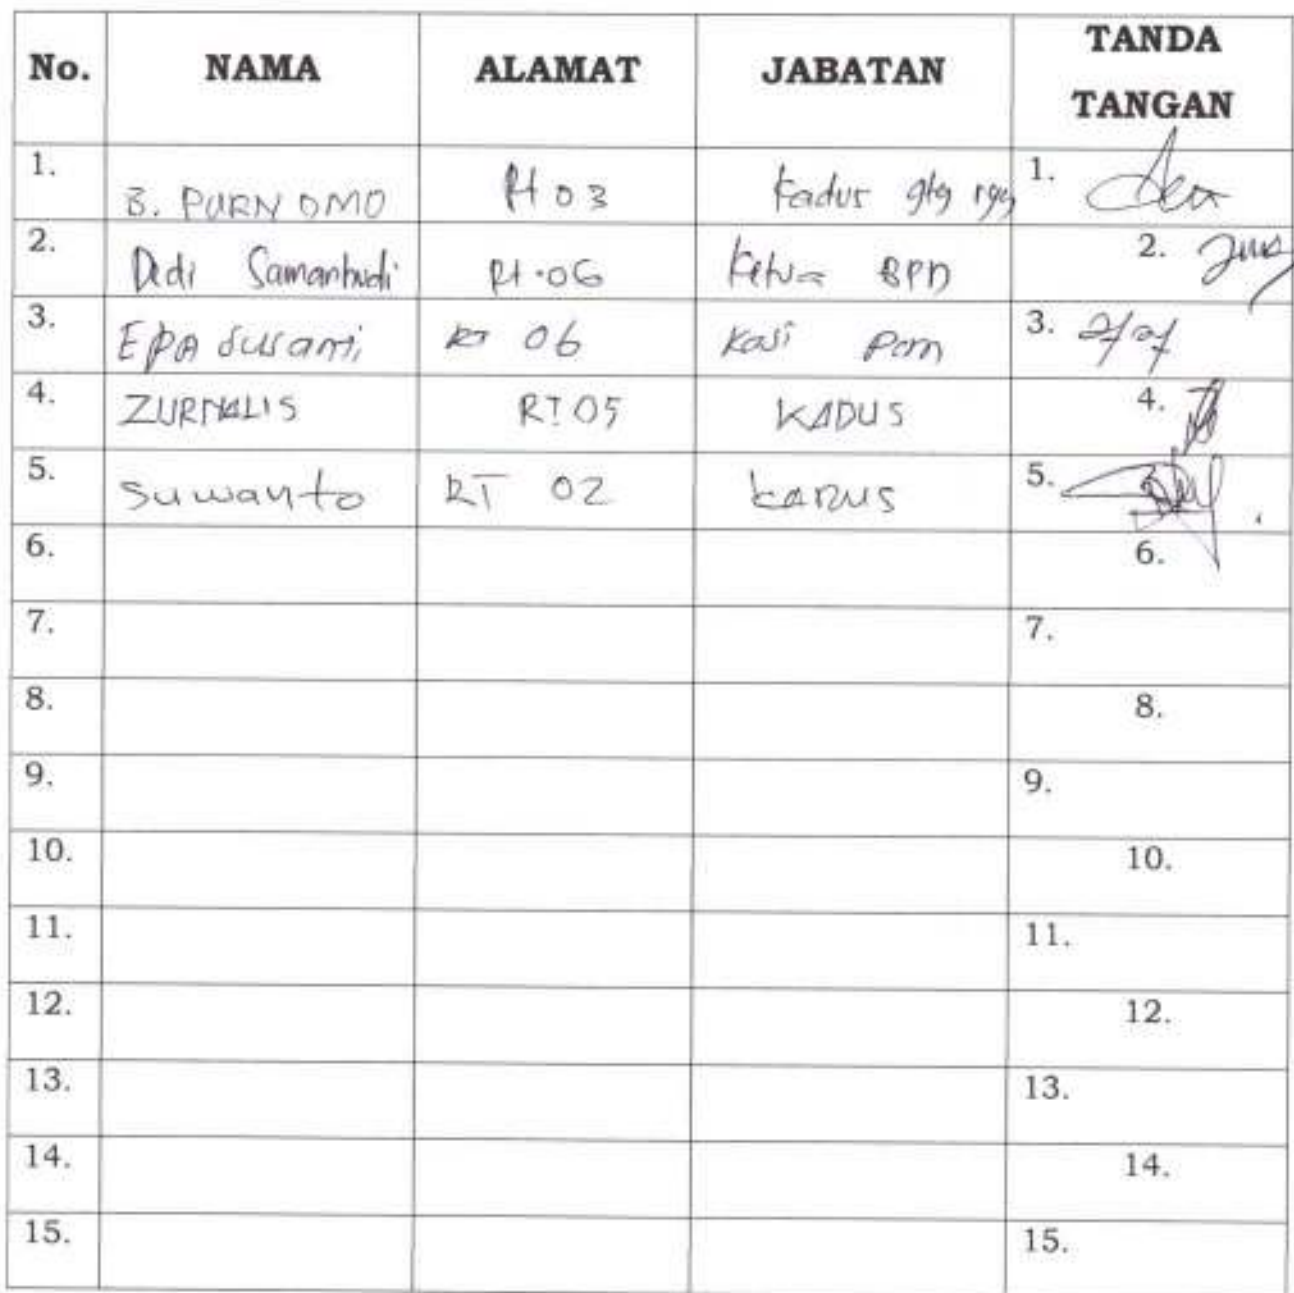 No. NAMA ALAMAT JABATAN TANDA TANGAN
1. B. PURNOMO Rt 03 Kadus gtg 1.
2. Dedi Samanhudi Rt. 06 Ketua BPD 2.
3. EPA Susanti, RT 06 Kasi Pem 3.
4. ZURNALIS RT 05 KADUS 4.
5. Suwanto RT 02 KADUS 5.
6. 6.
7. 7.
8. 8.
9. 9.
10. 10.
11. 11.
12. 12.
13. 13.
14. 14.
15. 15.